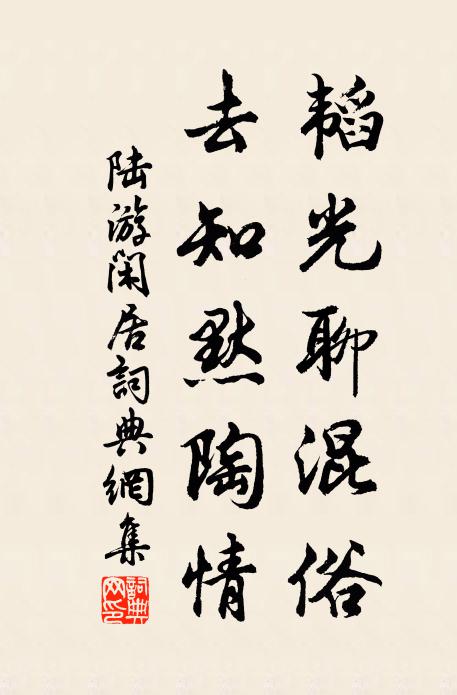 韬光聊混俗
去知默陶情
陆游闲居詞典網集
詞典
网印